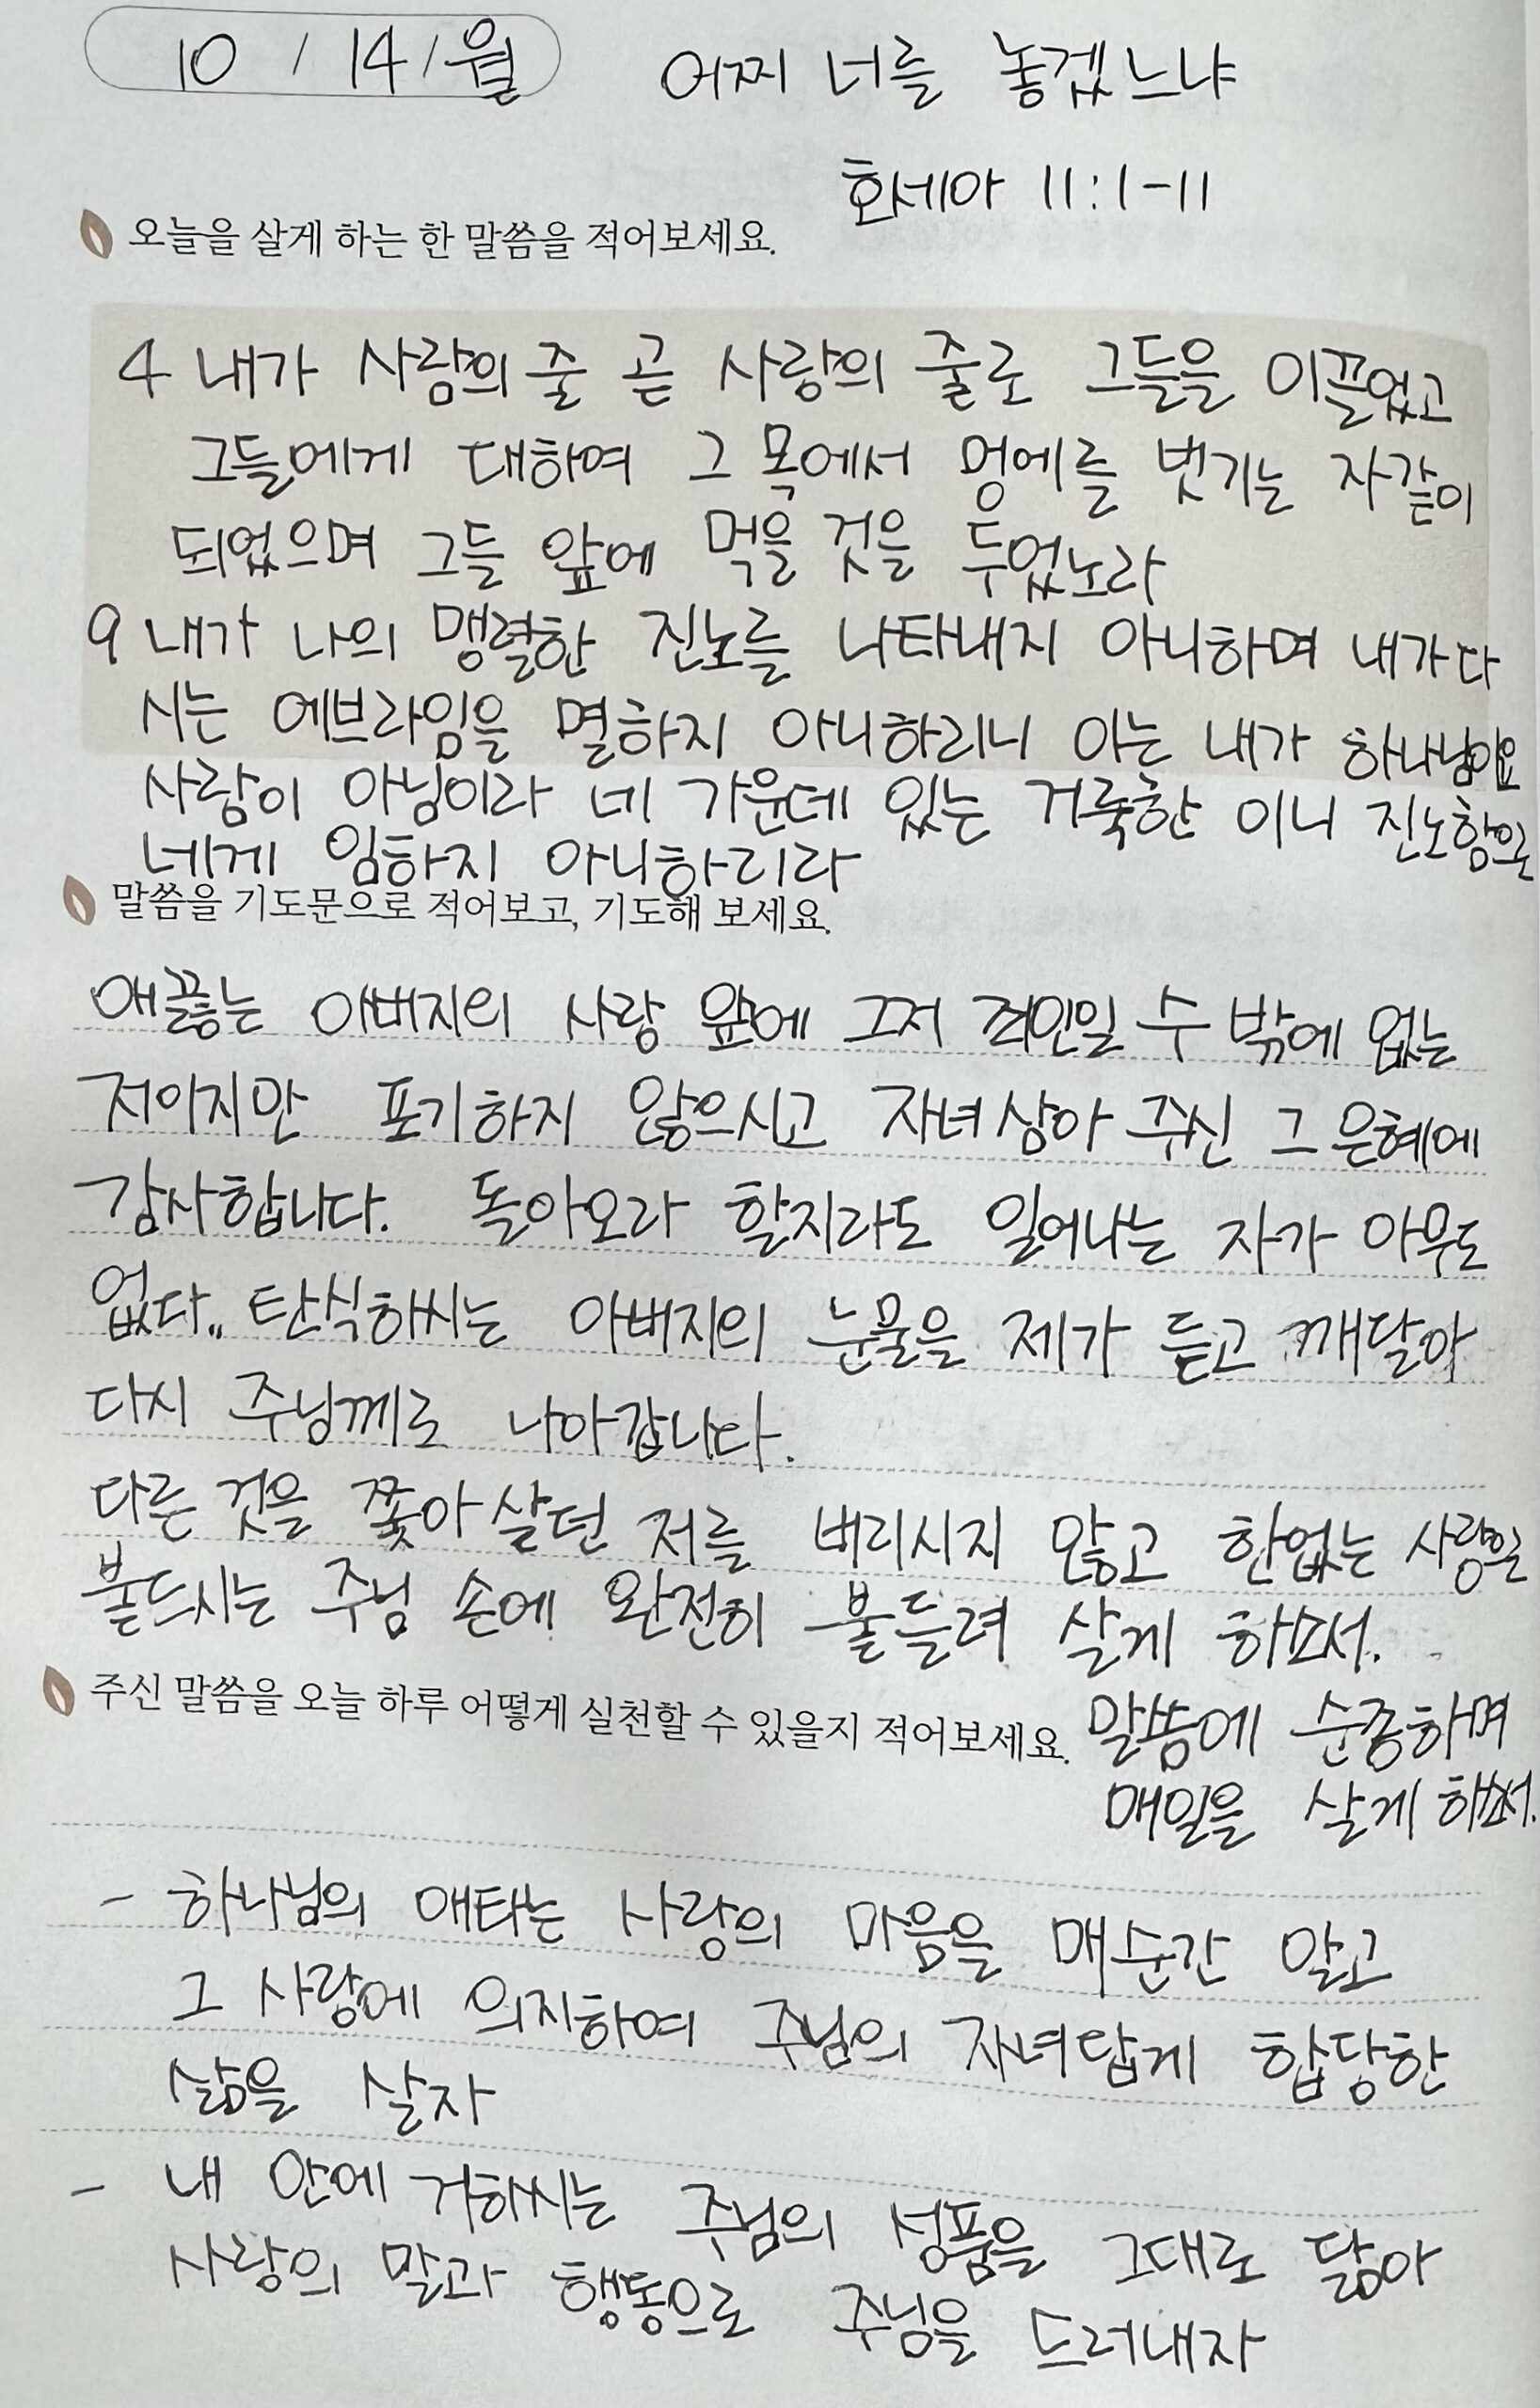 10 / 14 / 월
어찌 너를 놓겠느냐
호세아 11:1-11
오늘을 살게 하는 한 말씀을 적어보세요.
4 내가 사람의 줄 곧 사랑의 줄로 그들을 이끌었고
그들에게 대하여 그 목에서 멍에를 벗기는 자같이
되었으며 그들 앞에 먹을 것을 두었노라
9 내가 나의 맹렬한 진노를 나타내지 아니하며 내가 다
시는 에브라임을 멸하지 아니하리니 이는 내가 하나님이요
사람이 아님이라 네 가운데 있는 거룩한 이니 진노함으로
네게 임하지 아니하리라
말씀을 기도문으로 적어보고, 기도해 보세요.
애끓는 아버지의 사랑 앞에 그저 죄인일 수 밖에 없는
저이지만 포기하지 않으시고 자녀삼아 주신 그 은혜에
감사합니다. 돌아오라 할지라도 일어나는 자가 아무도
없다.. 탄식하시는 아버지의 눈물을 제가 듣고 깨달아
다시 주님께로 나아갑니다.
다른 것을 쫓아 살던 저를 버리시지 않고 한없는 사랑으로
붙드시는 주님 손에 완전히 붙들려 살게 하소서.
주신 말씀을 오늘 하루 어떻게 실천할 수 있을지 적어보세요.
말씀에 순종하며
매일을 살게 하소서.
- 하나님의 애타는 사랑의 마음을 매순간 알고
그 사랑에 의지하여 주님의 자녀답게 합당한
삶을 살자
- 내 안에 거하시는 주님의 성품을 그대로 닮아
사랑의 말과 행동으로 주님을 드러내자